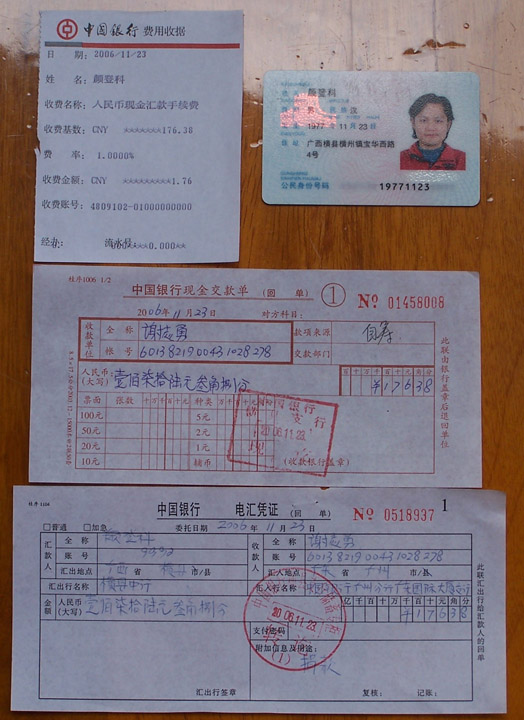 中国银行 费用收据
日 期: 2006/11/23
姓 名: 颜登科
收费名称: 人民币现金汇款手续费
收费基数: CNY *******176.38
费 率: 1.0000%
收费金额: CNY *********1.76
收费账号: 4809102-01000000000
经办: 流水号:
颜登科
1977 年 11 月 23 日
住址 广西横县横州镇宝华西路
4号
公民身份号码 19771123
桂丼1006 1/2
中国银行现金交款单 (回 单) ① No 01458008
2006年 11月 23日 对方科目:
收款单位 全 称 谢志勇 款项来源 自筹
帐 号 6013821900431028278 交款部门
人民币: (大写) 壹佰柒拾陆元叁角捌分 百十千百十元角分
¥17638
票面 张数 千百十元 种类
100元 5元
50元 2元
20元 1元
10元 辅币 (收款银行盖章)
银行
支行
2006.11.23
现
此联由银行盖章后退回单位
桂丼1104
中国银行 电汇凭证 (回 单) No 0518937 1
□普通 □加急 委托日期 2006年 11月 23日
汇款人 全 称 颜登科 收款人 全 称 谢志勇
账 号 账 号 6013821900431028278
汇出地点 广西 省 横县 市/县 汇入地点 广东 省 广州 市/县
汇出行名称 横县中行 汇入行名称
金额 人民币 (大写) 壹佰柒拾陆元叁角捌分 亿千百十万千百十元角分
¥17638
2006.11.23
转讫
(1)
支付密码
附加信息及用途:
捐款
汇出行签章 复核: 记账:
此联汇出行给汇款人的回单